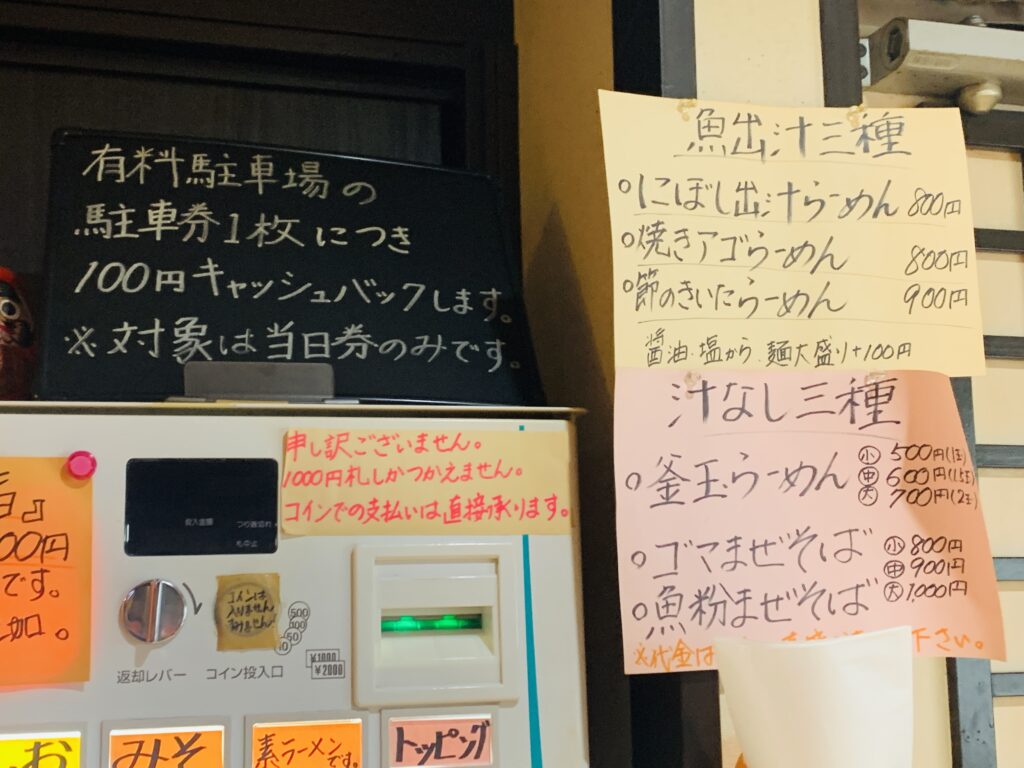 有料駐車場の
駐車券1枚につき
100円キャッシュバックします。
※対象は当日券のみです。
魚出汁三種
○にぼし出汁らーめん 800円
○焼きアゴらーめん 800円
○節のきいたらーめん 900円
醤油・塩から、麺大盛り+100円
汁なし三種
○釜玉らーめん
小 500円(1玉)
中 600円(1.5玉)
大 700円(2玉)
○ゴマまぜそば
○魚粉まぜそば
小 800円
中 900円
大 1,000円
※代金は
下さい。
申し訳ございません。
1000円札しかつかえません。
コインでの支払いは直接承ります。
』
00円
です。
加。
投入金額 つり銭切れ
札中止
コインは
入りません
返却レバー コイン投入口
500
100
50
10
¥1000
¥2000
お
みそ
素ラーメン
です。
トッピング